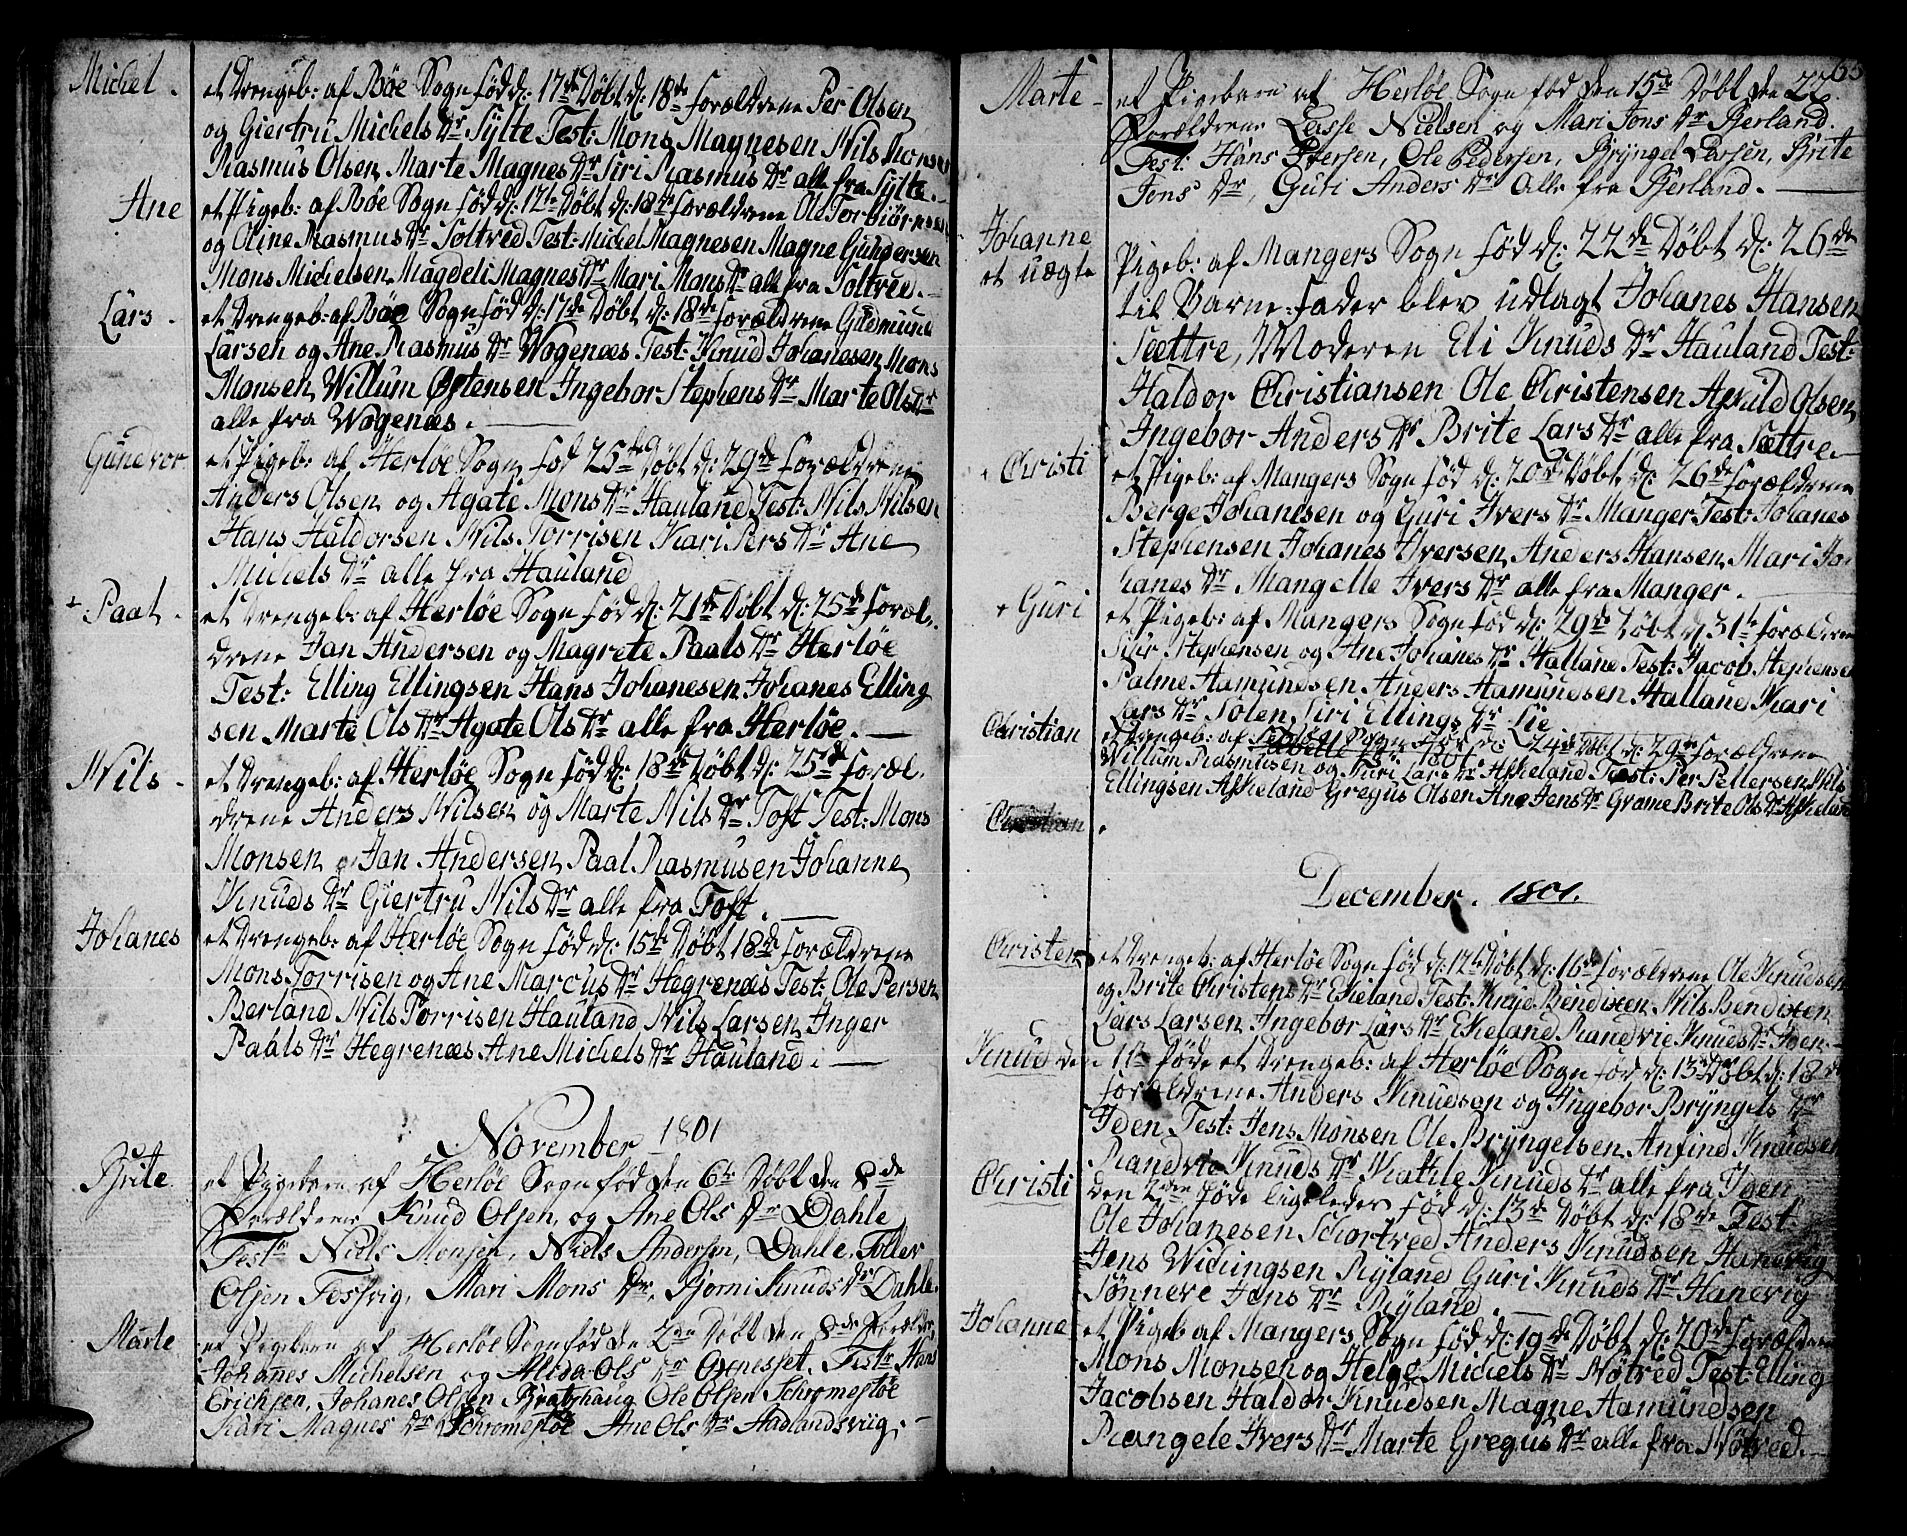 Michel. et Drengeb: af Bøe Sogn fød d: 17de Døbt d: 18de forældrene Per Olsen
og Giertru Michels Dr Sylte Test: Mons Magnesen Nils Monsen
Rasmus Olsen Marte Magnes Dr Siri Rasmus Dr alle fra Sylte.
Ane et Pigeb: af Bøe Sogn fød d: 12te Døbt d: 18de forældrene Ole Torbiørnsen
og Oline Rasmus Dr Soltved Test: Michel Magnesen Magne Gundersen
Mons Michelsen Magdeli Magnes Dr Mari Mons Dr alle fra Soltved.
Lars. et Drengeb: af Bøe Sogn fød d: 17de Døbt d: 18de forældrene Gudmund
Larsen og Ane Rasmus Dr Wogenæs Test: Knud Johanesen Mons
Monsen Willum Østensen Ingebor Stephens Dr Marte Ols Dr
alle fra Wogenæs.
Gundvor et Pigeb: af Herløe Sogn fød 25de Døbt d: 29de forældrene
Anders Olsen og Agate Mons Dr Hauland Test: Nils Nilsen
Hans Haldorsen Nils Torrisen Kari Pers Dr Ane
Michels Dr alle fra Hauland
Paal. et Drengeb: af Herløe Sogn fød d: 21de Døbt d: 25de foræl-
drene Jan Andersen og Magrete Paals Dr Herløe
Test: Elling Ellingsen Hans Johanesen Johanes Elling
sen Marte Ols Dr Agate Ols Dr alle fra Herløe.
Nils. et Drengeb: af Herløe Sogn fød d: 18de Døbt d: 25de foræl-
drene Anders Nilsen og Marte Nils Dr Toft Test: Mons
Monsen Jan Andersen Paal Rasmusen Johanne
Knuds Dr Giertru Nils Dr alle fra Toft.
Johanes et Drengeb: af Herløe Sogn fød d: 15de Døbt 18de forældrene
Mons Torrisen og Ane Marcus Dr Hegrenæs Test: Ole Persen
Berland Nils Torrisen Hauland Nils Larsen Inger
Paals Dr Hegrenæs Ane Michels Dr Hauland.
November 1801
Brite et Pigebarn af Herløe Sogn fød den 6te Døbt den 8de
Forældrene Knud Olsen, og Ane Ols Dr Dahle
Test: Niels Monsen, Niels Andersen, Dahle, Toller
Olsen Fosvig, Mari Mons Dr, Bjorni Knuds Dr Dahle.
Marte et Pigebarn af Herløe Sogn fød den 2den Døbt den 8de Foræld:
Johanes Michelsen og Alida Ols Dr Oxnesset. Test: Hans
Erichsen, Johanes Olsen Bratshaug Ole Olsen Schromesløe
Kari Magnes Dr Schromesløe Ane Ols Dr Aadlandsviig.
65
Marte et Pigebarn af Herløe Sogn fød den 15de Døbt den 22.
Forældrene Lasse Nielsen og Mari Jons Dr Bjerland.
Test: Hans Iversen, Ole Pedersen, Bryngel Larsen, Brite
Jons Dr, Guri Anders Dr Alle fra Bjerland.
Johanne et uægte Pigeb: af Mangers Sogn fød d: 22de Døbt d: 26de
til Barne-fader blev udlagt Johanes Hansen
Sættre, Moderen Eli Knuds Dr Hauland Test:
Haldor Christiansen Ole Christensen Askild Olsen
Ingebor Anders Dr Brite Lars Dr alle fra Sættre
Christi et Pigeb: af Mangers Sogn fød d: 20de Døbt d: 26de forældrene
Berge Johanesen og Guri Ivers Dr Manger Test: Johanes
Stephensen Johanes Iversen Anders Hansen Mari Jo-
hanes Dr Mangelle Ivers Dr alle fra Manger.
Guri et Pigeb: af Mangers Sogn fød d: 29de Døbt d: 31te forældrene
Siur Stephensen og Ane Johanes Dr Halland Test: Jacob Stephensen
Palme Aamundsen Anders Aamundsen Halland Kari
Lars Dr Solen Siri Ellings Dr Lie
Christian et Drengeb: af Sogn fød d: 24de Døbt d: 29de forældrene
Willum Rasmusen og Siri Lars Dr Askeland Test: Per Pettersen Nils
Ellingsen Askeland Gregus Olsen Ane Jens Dr Grame Brite Ols Dr Askeland
Christian
December. 1801.
Christen et Drengeb: af Herløe Sogn fød d: 12te Døbt d: 16de forældrene Ole Knudsen
og Brite Christens Dr Ekeland Test: Knud Bendixen Nils Bendixen
Lars Larsen Ingebor Lars Dr Ekeland Randvie Knuds Dr Iden.
Knud den 1te føde et Drengeb: af Herløe Sogn fød d: 13de Døbt d: 18de
forældrene Anders Knudsen og Ingebor Bryngels Dr
Iden Test: Jens Monsen Ole Bryngelsen Anfind Knudsen
Randvie Knuds Dr Matile Knuds Dr alle fra Iden
Christi den 2den føde ligeledes fød d: 13de Døbt d: 18de Test:
Ole Johanesen Schortved Anders Knudsen Hanevig
Jens Wichingsen Ryland Guri Knuds Dr Hanevig
Sønneve Jens Dr Ryland.
Johanne et Pigeb af Mangers Sogn fød d: 19de Døbt d: 20de forældrene
Mons Monsen og Helge Michels Dr Nøtved Test: Elling
Jacobsen Haldor Knudsen Magne Aamundsen
Rangele Ivers Dr Marte Gregus Dr alle fra Nøtved.